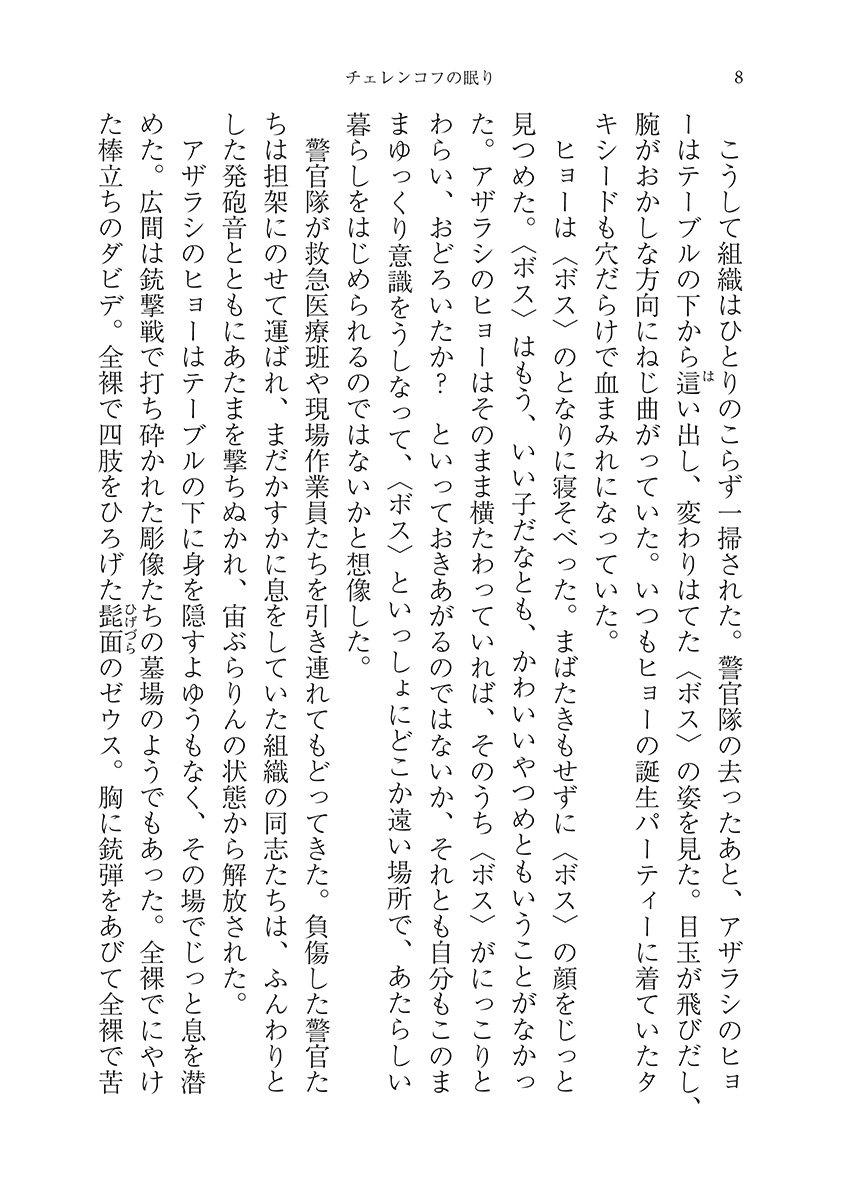 チェレンコフの眠り
8
こうして組織はひとりのこらず一掃された。警官隊の去ったあと、アザラシのヒョ
ーはテーブルの下から這い出し、変わりはてた〈ボス〉の姿を見た。目玉が飛びだし、
は
腕がおかしな方向にねじ曲がっていた。いつもヒョーの誕生パーティーに着ていたタ
キシードも穴だらけで血まみれになっていた。
ヒョーは〈ボス〉のとなりに寝そべった。まばたきもせずに〈ボス〉の顔をじっと
見つめた。〈ボス〉はもう、いい子だなとも、かわいいやつめともいうことがなかっ
た。アザラシのヒョーはそのまま横たわっていれば、そのうち〈ボス〉がにっこりと
わらい、おどろいたか？　といっておきあがるのではないか、それとも自分もこのま
まゆっくり意識をうしなって、〈ボス〉といっしょにどこか遠い場所で、あたらしい
暮らしをはじめられるのではないかと想像した。
警官隊が救急医療班や現場作業員たちを引き連れてもどってきた。負傷した警官た
ちは担架にのせて運ばれ、まだかすかに息をしていた組織の同志たちは、ふんわりと
した発砲音とともにあたまを撃ちぬかれ、宙ぶらりんの状態から解放された。
アザラシのヒョーはテーブルの下に身を隠すよゆうもなく、その場でじっと息を潜
めた。広間は銃撃戦で打ち砕かれた彫像たちの墓場のようでもあった。全裸でにやけ
た棒立ちのダビデ。全裸で四肢をひろげた髭面のゼウス。胸に銃弾をあびて全裸で苦
ひげづら